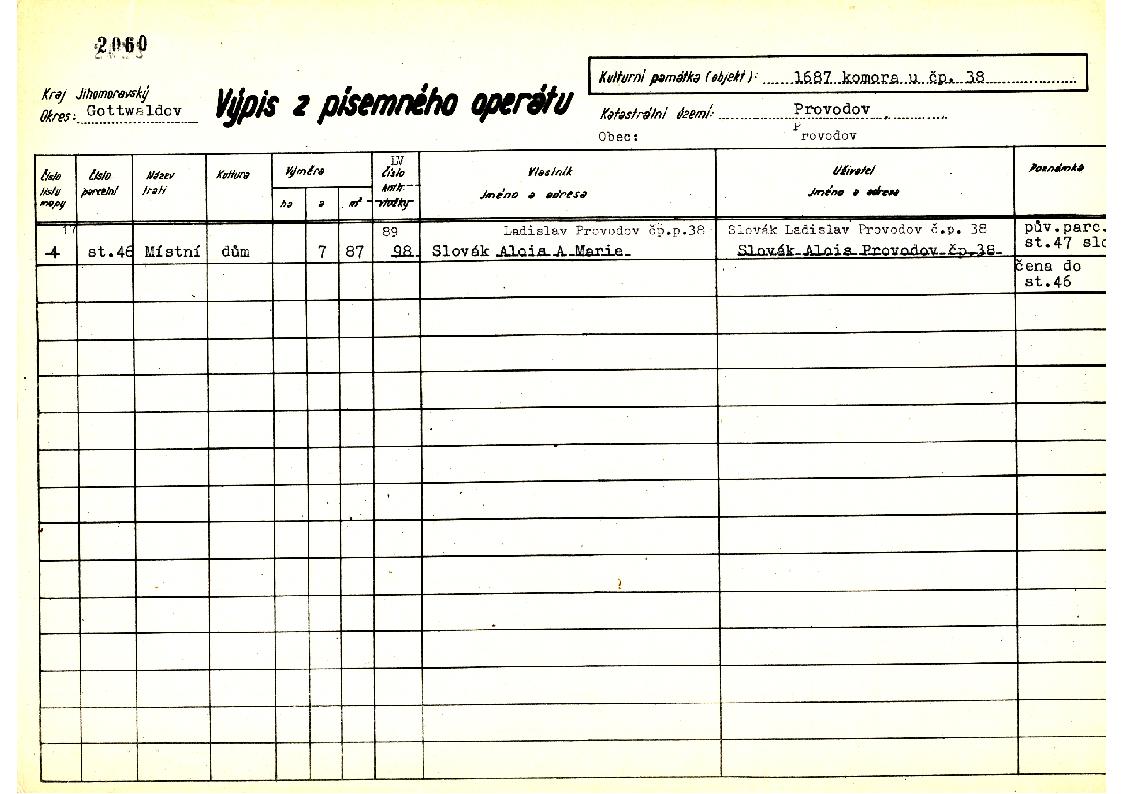 2060
Kraj Jihomoravský
Okres: Gottwaldov
Výpis z písemného operátu
Kulturní památka (objekt): 1687 komora u čp. 38
Katastrální území: Provodov
Obec: Provodov
Číslo listu mapy
Číslo parcelní
Název trati
Kultura
Výměra
ha a m²
LV číslo knih. vložky
Vlastník
Jméno a adresa
Uživatel
Jméno a adresa
Poznámka
17 89 Ladislav Provodov čp.p.38 Slovák Ladislav Provodov č.p. 38 pův.parc.
4 st.46 Místní dům 7 87 98 Slovák Alois A Marie Slovák Alois Provodov čp.38 st.47 slo
čena do
st.46